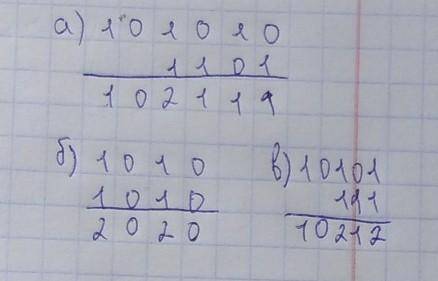 а) 1 0 1 0 1 0
1 1 0 1
1 0 2 1 1 1
б) 1 0 1 0
1 0 1 0
2 0 2 0
в) 10101
111
10212